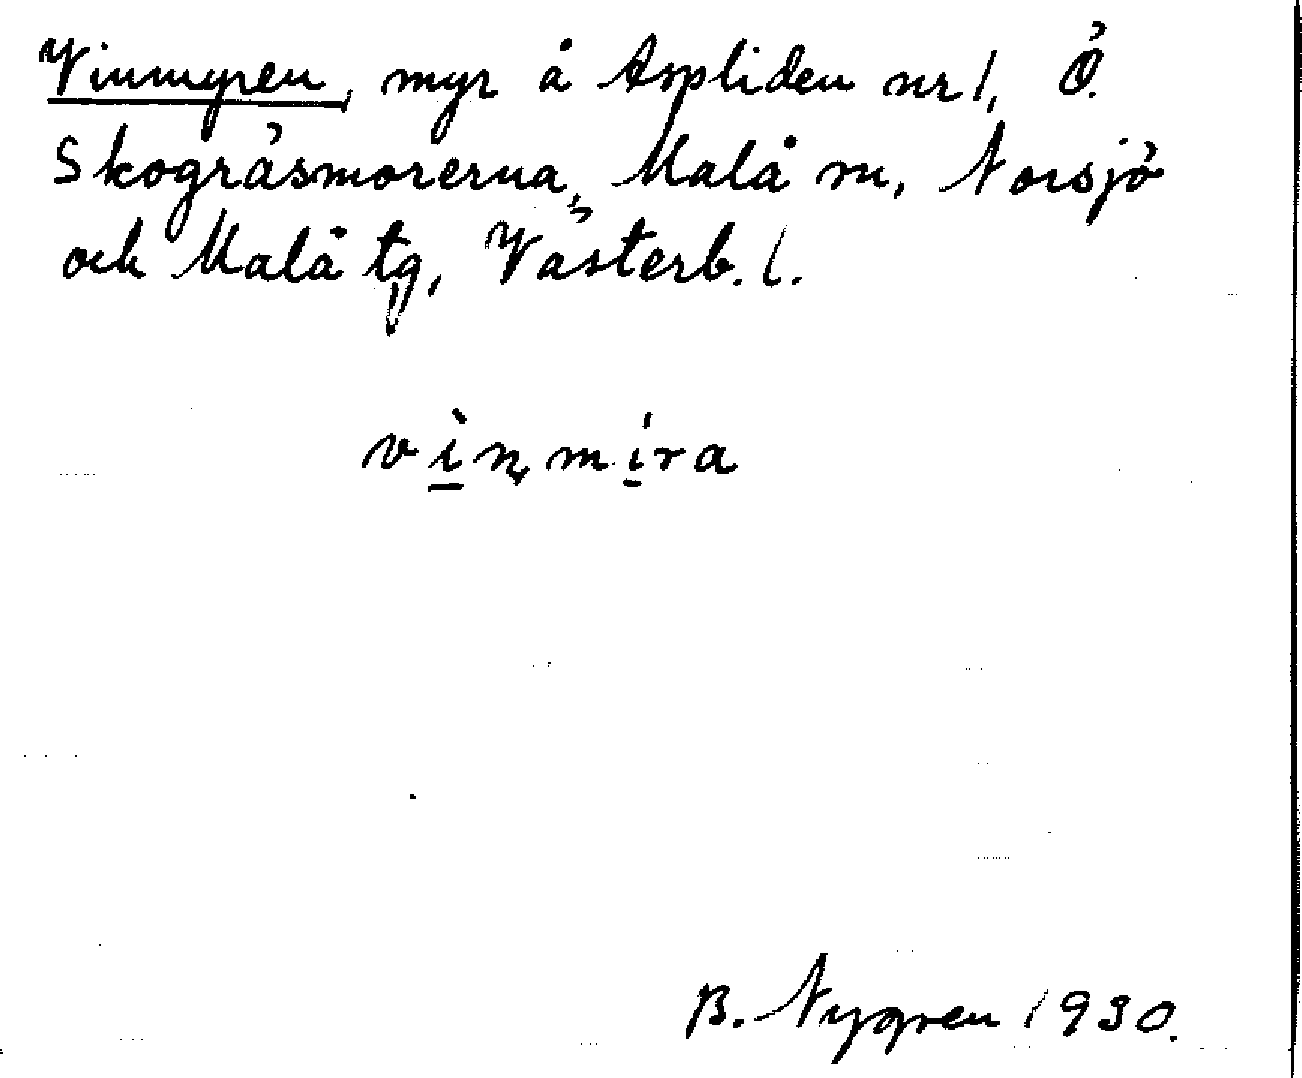 Vinmyren, myr å Aspliden nr 1, Ö.
Skogråsmorerna, Malå sn, Norsjö
och Malå tg, Västerb. l.
vìnmíra
B. Nygren 1930.